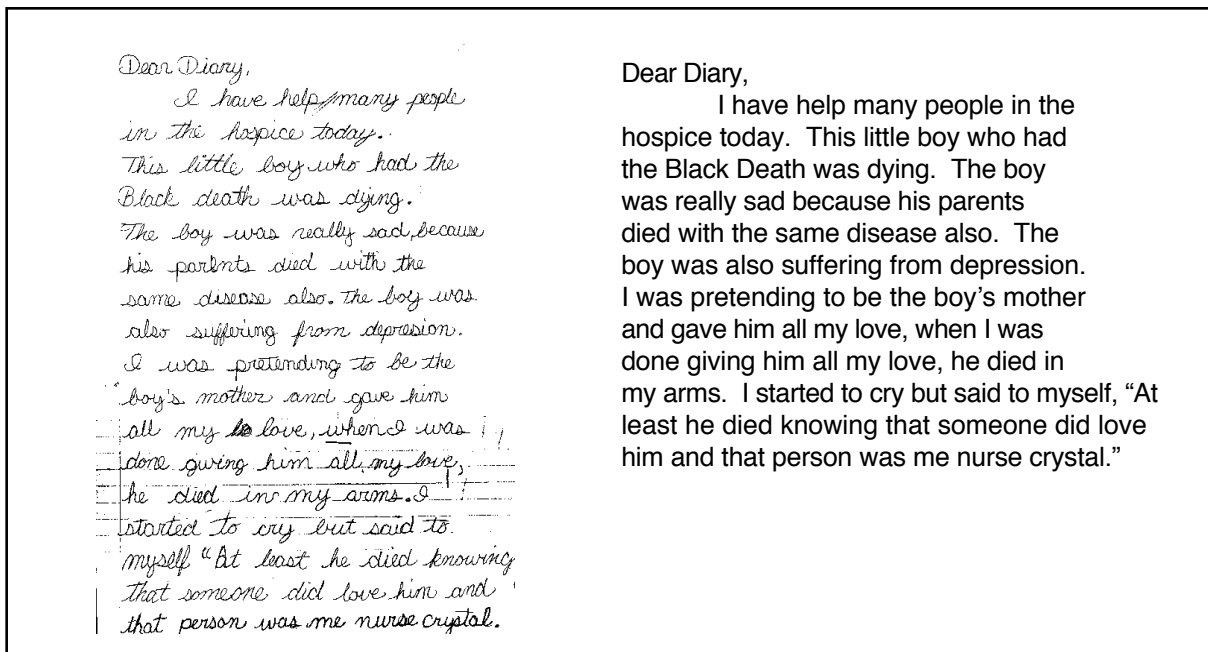 Dear Diary,
I have help many people
in the hospice today.
This little boy who had the
Black death was dying.
The boy was really sad, because
his parents died with the
same disease also. The boy was
also suffering from depresion.
I was pretending to be the
boy's mother and gave him
all my love, when I was
done giving him all my love,
he died in my arms. I
started to cry but said to
myself "At least he died knowing
that someone did love him and
that person was me nurse crystal.
Dear Diary,
I have help many people in the
hospice today. This little boy who had
the Black Death was dying. The boy
was really sad because his parents
died with the same disease also. The
boy was also suffering from depression.
I was pretending to be the boy’s mother
and gave him all my love, when I was
done giving him all my love, he died in
my arms. I started to cry but said to myself, “At
least he died knowing that someone did love
him and that person was me nurse crystal.”